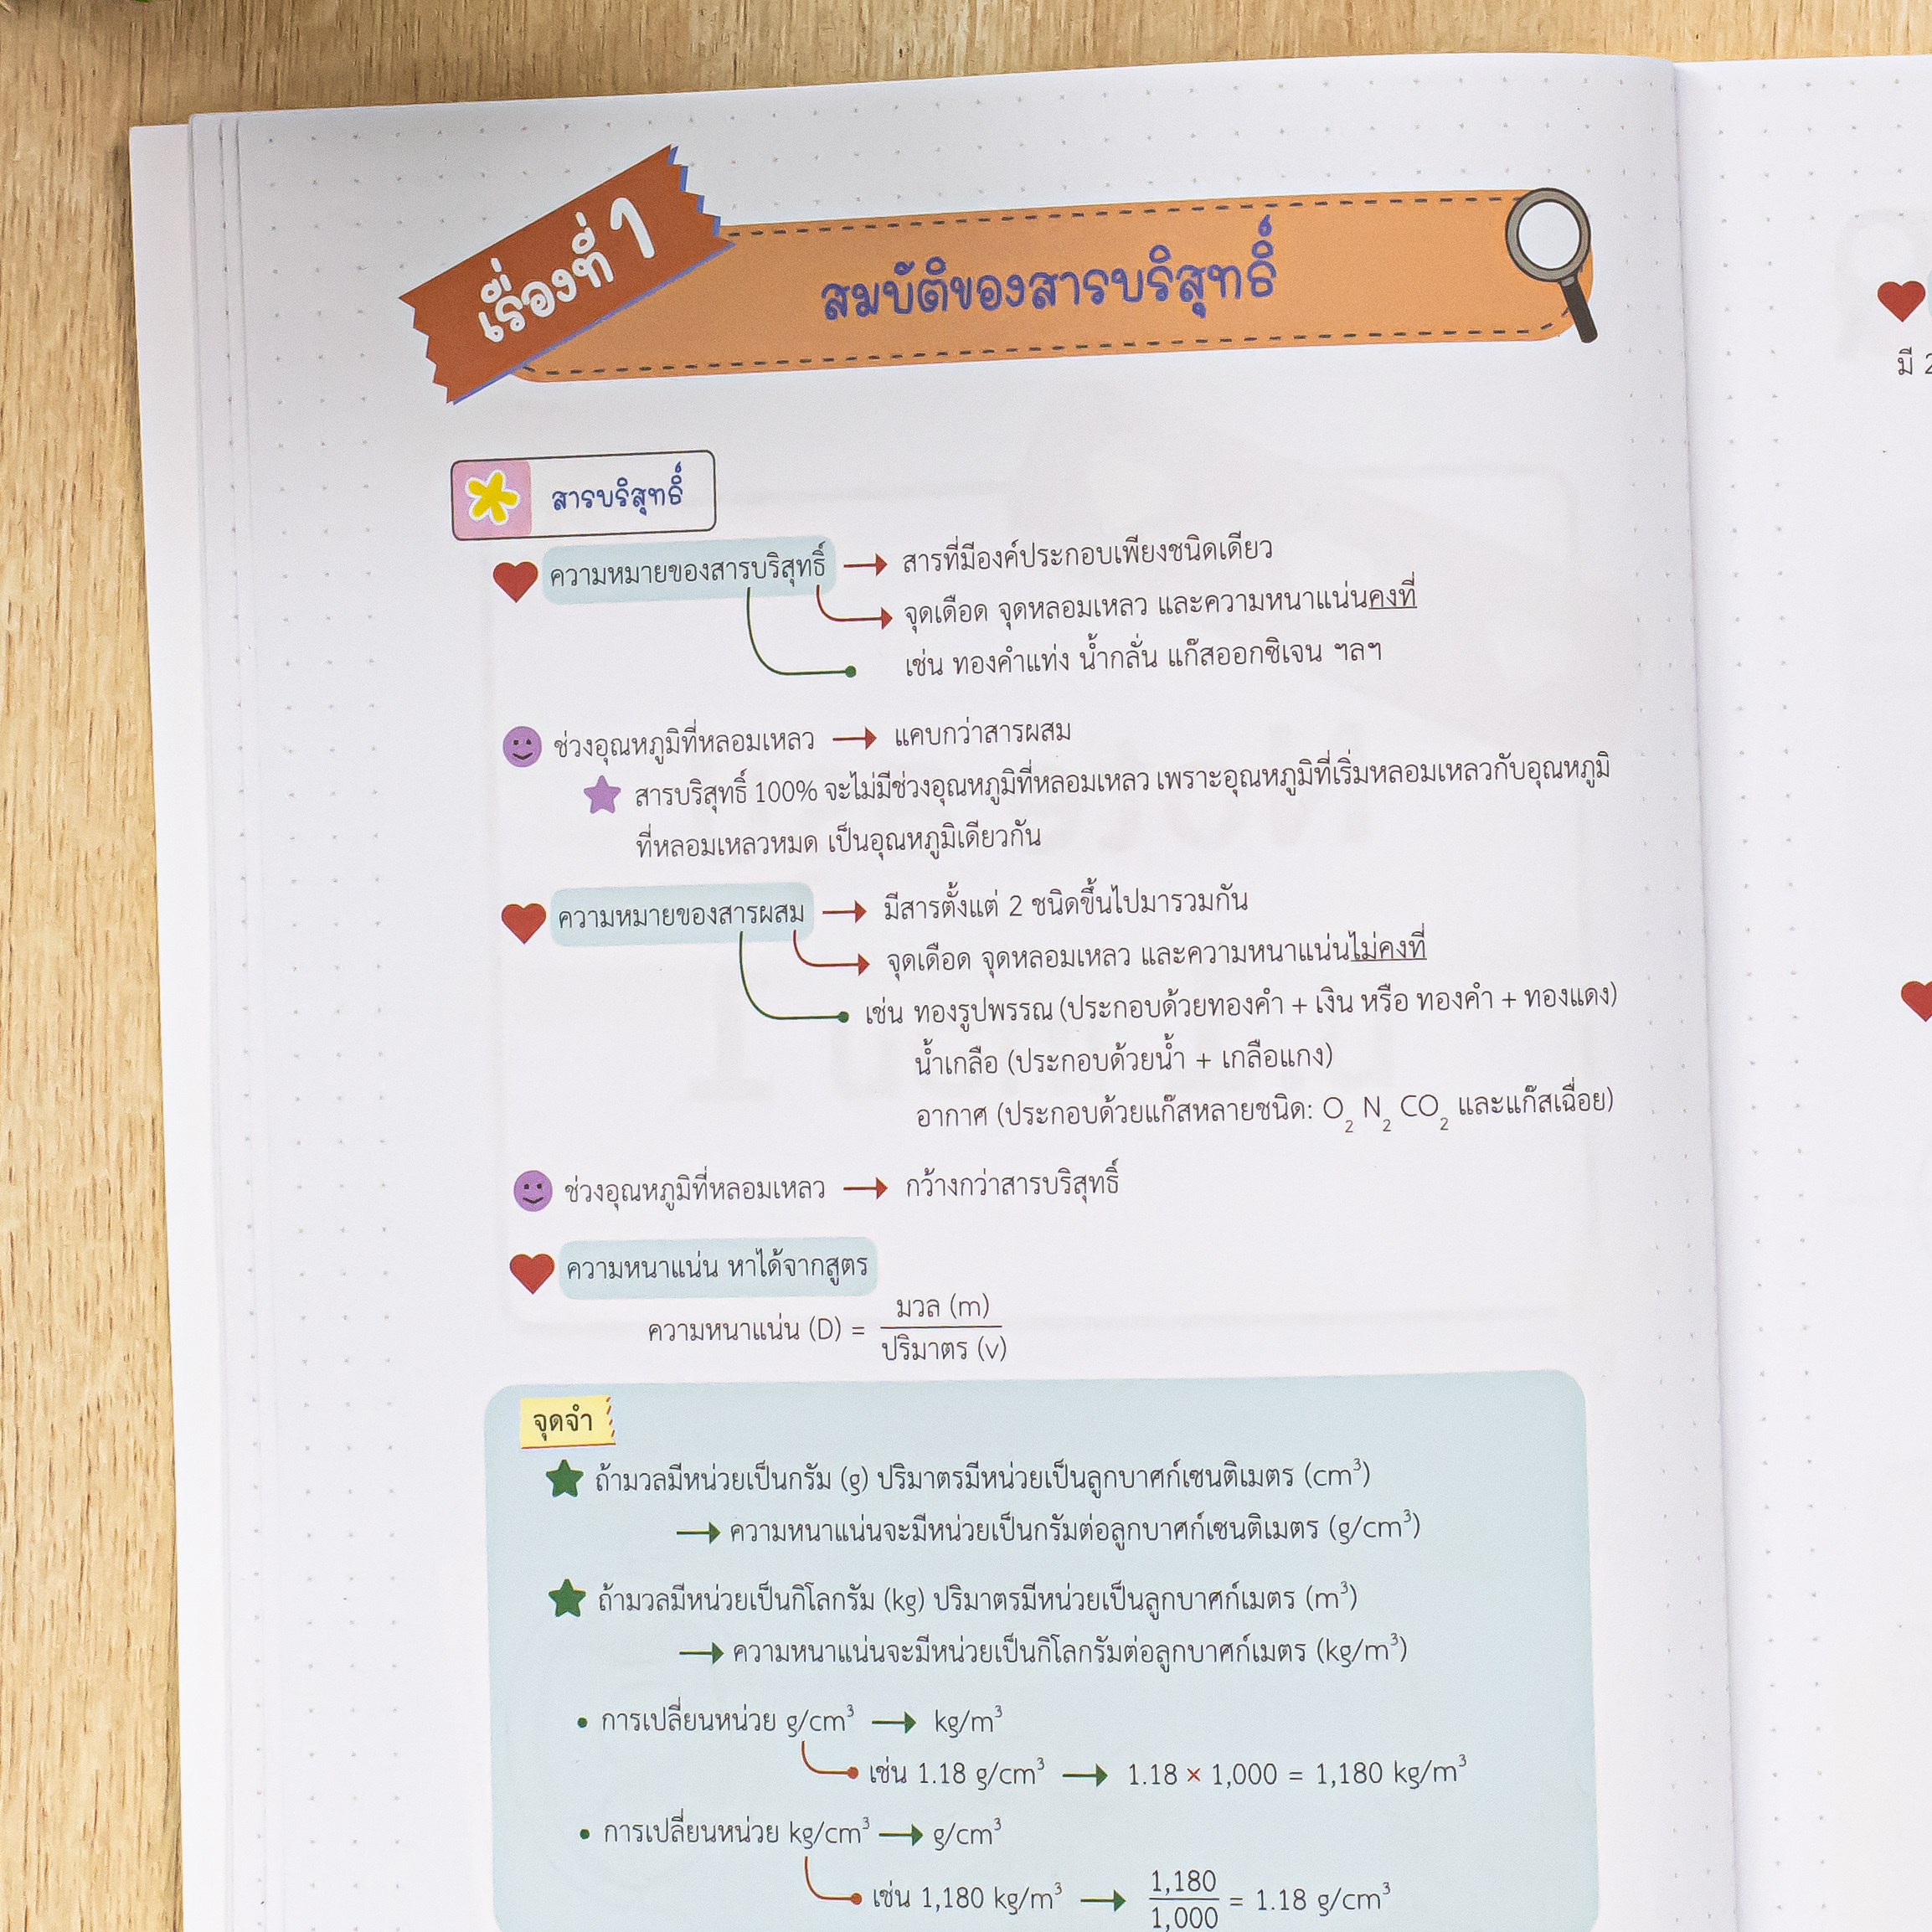 เรื่องที่ 1
สมบัติของสารบริสุทธิ์
สารบริสุทธิ์
ความหมายของสารบริสุทธิ์ → สารที่มีองค์ประกอบเพียงชนิดเดียว
จุดเดือด จุดหลอมเหลว และความหนาแน่นคงที่
เช่น ทองคำแท่ง น้ำกลั่น แก๊สออกซิเจน ฯลฯ
ช่วงอุณหภูมิที่หลอมเหลว → แคบกว่าสารผสม
สารบริสุทธิ์ 100% จะไม่มีช่วงอุณหภูมิที่หลอมเหลว เพราะอุณหภูมิที่เริ่มหลอมเหลวกับอุณหภูมิ
ที่หลอมเหลวหมด เป็นอุณหภูมิเดียวกัน
ความหมายของสารผสม → มีสารตั้งแต่ 2 ชนิดขึ้นไปมารวมกัน
จุดเดือด จุดหลอมเหลว และความหนาแน่นไม่คงที่
เช่น ทองรูปพรรณ (ประกอบด้วยทองคำ + เงิน หรือ ทองคำ + ทองแดง)
น้ำเกลือ (ประกอบด้วยน้ำ + เกลือแกง)
อากาศ (ประกอบด้วยแก๊สหลายชนิด: O₂ N₂ CO₂ และแก๊สเฉื่อย)
ช่วงอุณหภูมิที่หลอมเหลว → กว้างกว่าสารบริสุทธิ์
ความหนาแน่น หาได้จากสูตร
ความหนาแน่น (D) = มวล (m) / ปริมาตร (v)
จุดจำ
ถ้ามวลมีหน่วยเป็นกรัม (g) ปริมาตรมีหน่วยเป็นลูกบาศก์เซนติเมตร (cm³)
→ ความหนาแน่นจะมีหน่วยเป็นกรัมต่อลูกบาศก์เซนติเมตร (g/cm³)
ถ้ามวลมีหน่วยเป็นกิโลกรัม (kg) ปริมาตรมีหน่วยเป็นลูกบาศก์เมตร (m³)
→ ความหนาแน่นจะมีหน่วยเป็นกิโลกรัมต่อลูกบาศก์เมตร (kg/m³)
• การเปลี่ยนหน่วย g/cm³ → kg/m³
เช่น 1.18 g/cm³ → 1.18 × 1,000 = 1,180 kg/m³
• การเปลี่ยนหน่วย kg/cm³ → g/cm³
เช่น 1,180 kg/m³ → 1,180 / 1,000 = 1.18 g/cm³
มี 2